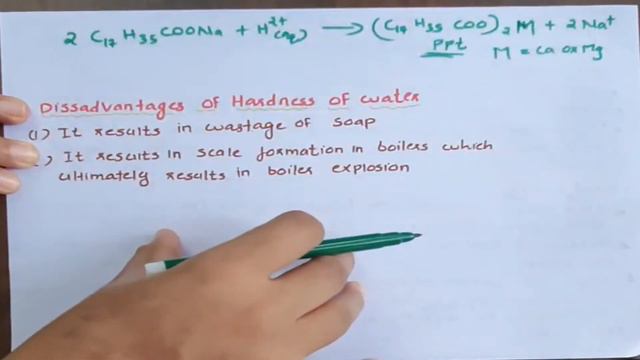 2 C₁₇ H₃₅ COONa + H²⁺(aq) → (C₁₇ H₃₅ COO)₂ M + 2 Na⁺
PPt
M = Ca or Mg
Dissadvantages of Hardness of water
(1) It results in wastage of soap
) It results in scale formation in boilers which
ultimately results in boiler explosion